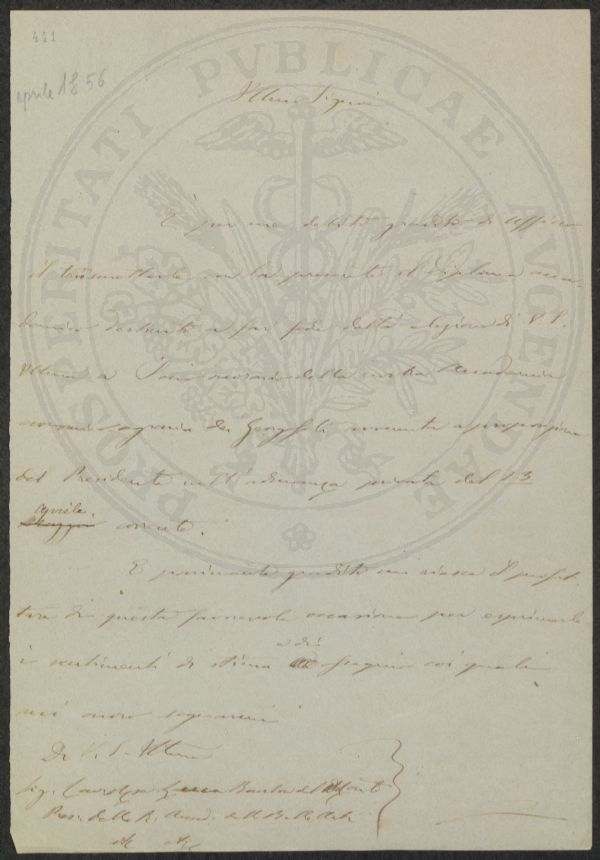 441
aprile 1856
PROSPERITATI PVBLICAE AVGENDAE
Illmo Signore
È per me debito gradito di ufficio
il trasmetterle con la presente il Diploma acca-
demico destinato a far fede della elezione di V. S.
Illma a Socio della nostra Accademia
economico agraria dei Georgofili avvenuta a proposizione
del Presidente nell'adunanza privata del 13
aprile.
corrente.
E parimente gradito mi riesce il profit-
tare di questa favorevole occasione per esprimerle
e di
i sentimenti di stima ossequio coi quali
mi onoro segnarmi
Di V. S. Illma
Sig. Cav.
Pres. della R. Accad. delle Belle Arti